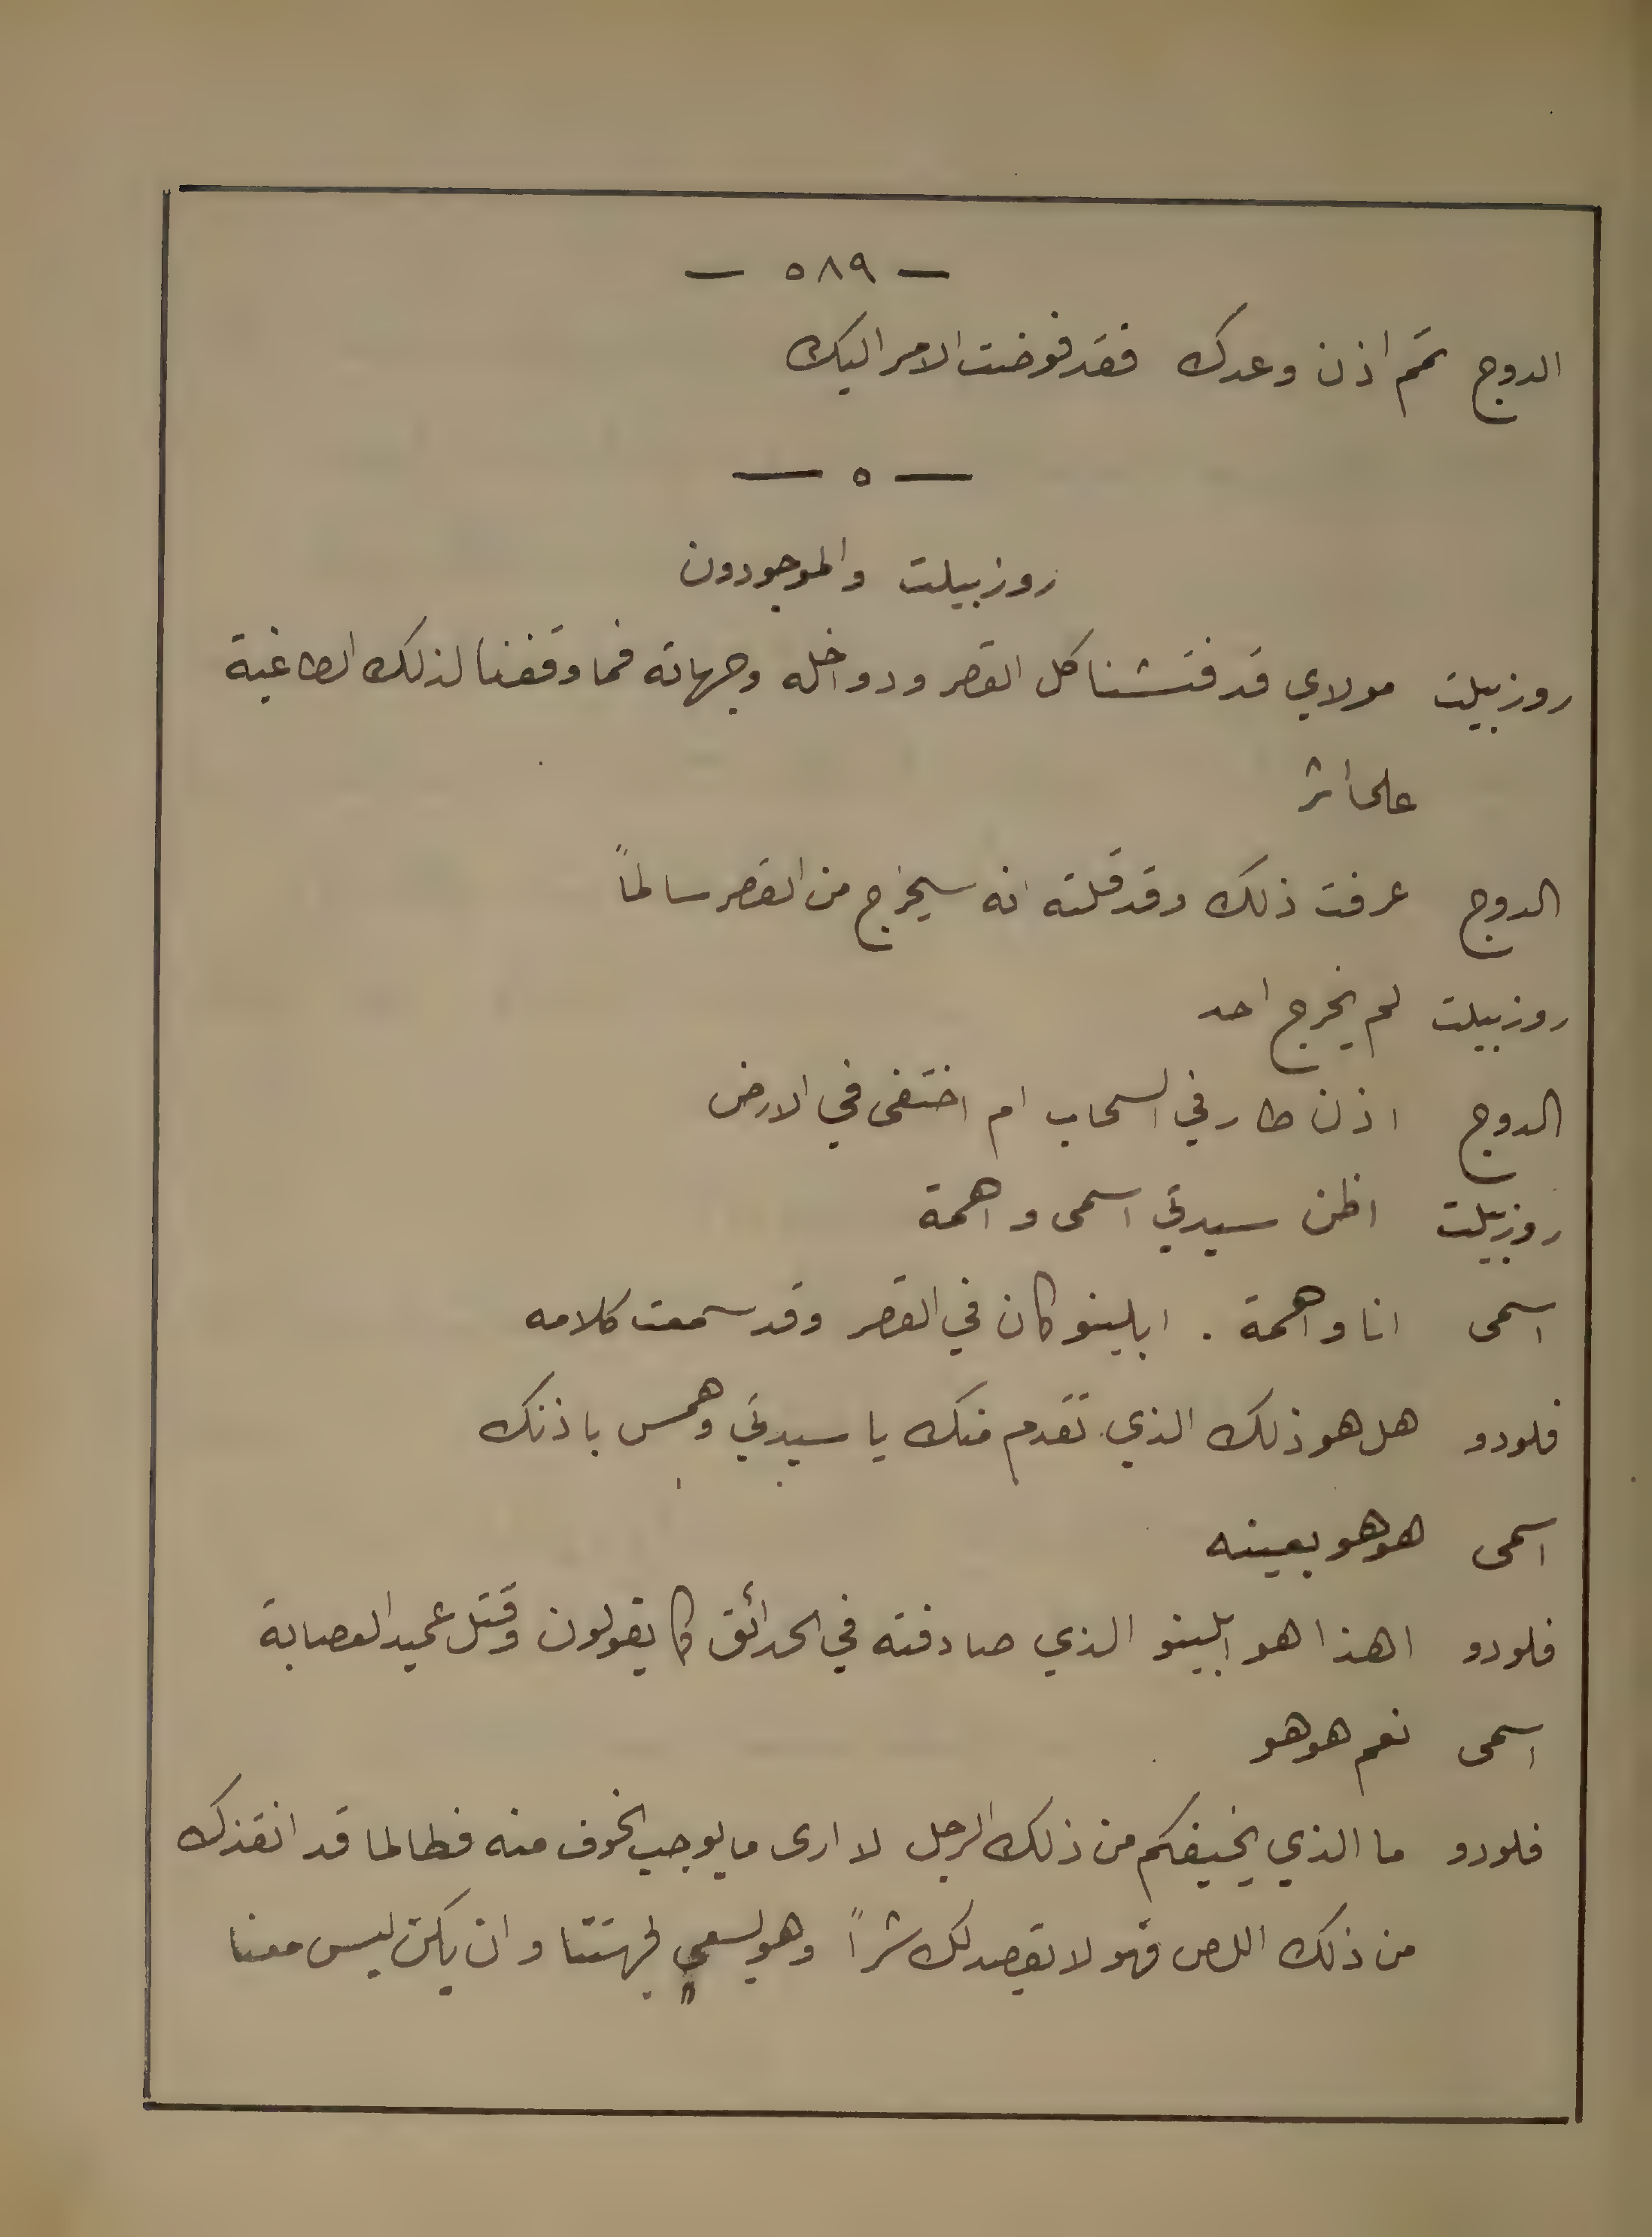 — ٥٨٩ —
الدوج تمم اذن وعدك فقد فوضت الامر اليك
— ٥ —
روزبيلت والموجودون
روزبيلت مولاي قد فتشنا كل القصر ودواخله وجهاته فما وقفنا لذلك الطاغية
على اثر
الدوج عرفت ذلك وقد قلته انه سيخرج من القصر سالماً
روزبيلت لم يخرج احد
الدوج اذن طار في السحاب ام اختفى في الارض
روزبيلت اظن سيدتي اسمى واهمة
اسمى انا واهمة . ابلينو كان في القصر وقد سمعت كلامه
فلودو هل هو ذلك الذي تقدم منك يا سيدتي وهمس باذنك
اسمى هو هو بعينه
فلودو اهذا هو ابلينو الذي صادفته في الحدائق كما يقولون وقتل عميد العصابة
اسمى نعم هو هو
فلودو ما الذي يخيفكم من ذلك الرجل لا ارى ما يوجب الخوف منه فطالما قد انقذك
من ذلك اللص فهو لا يقصد لك شراً وهو يسعى لجهتنا وان يكن ليس معنا